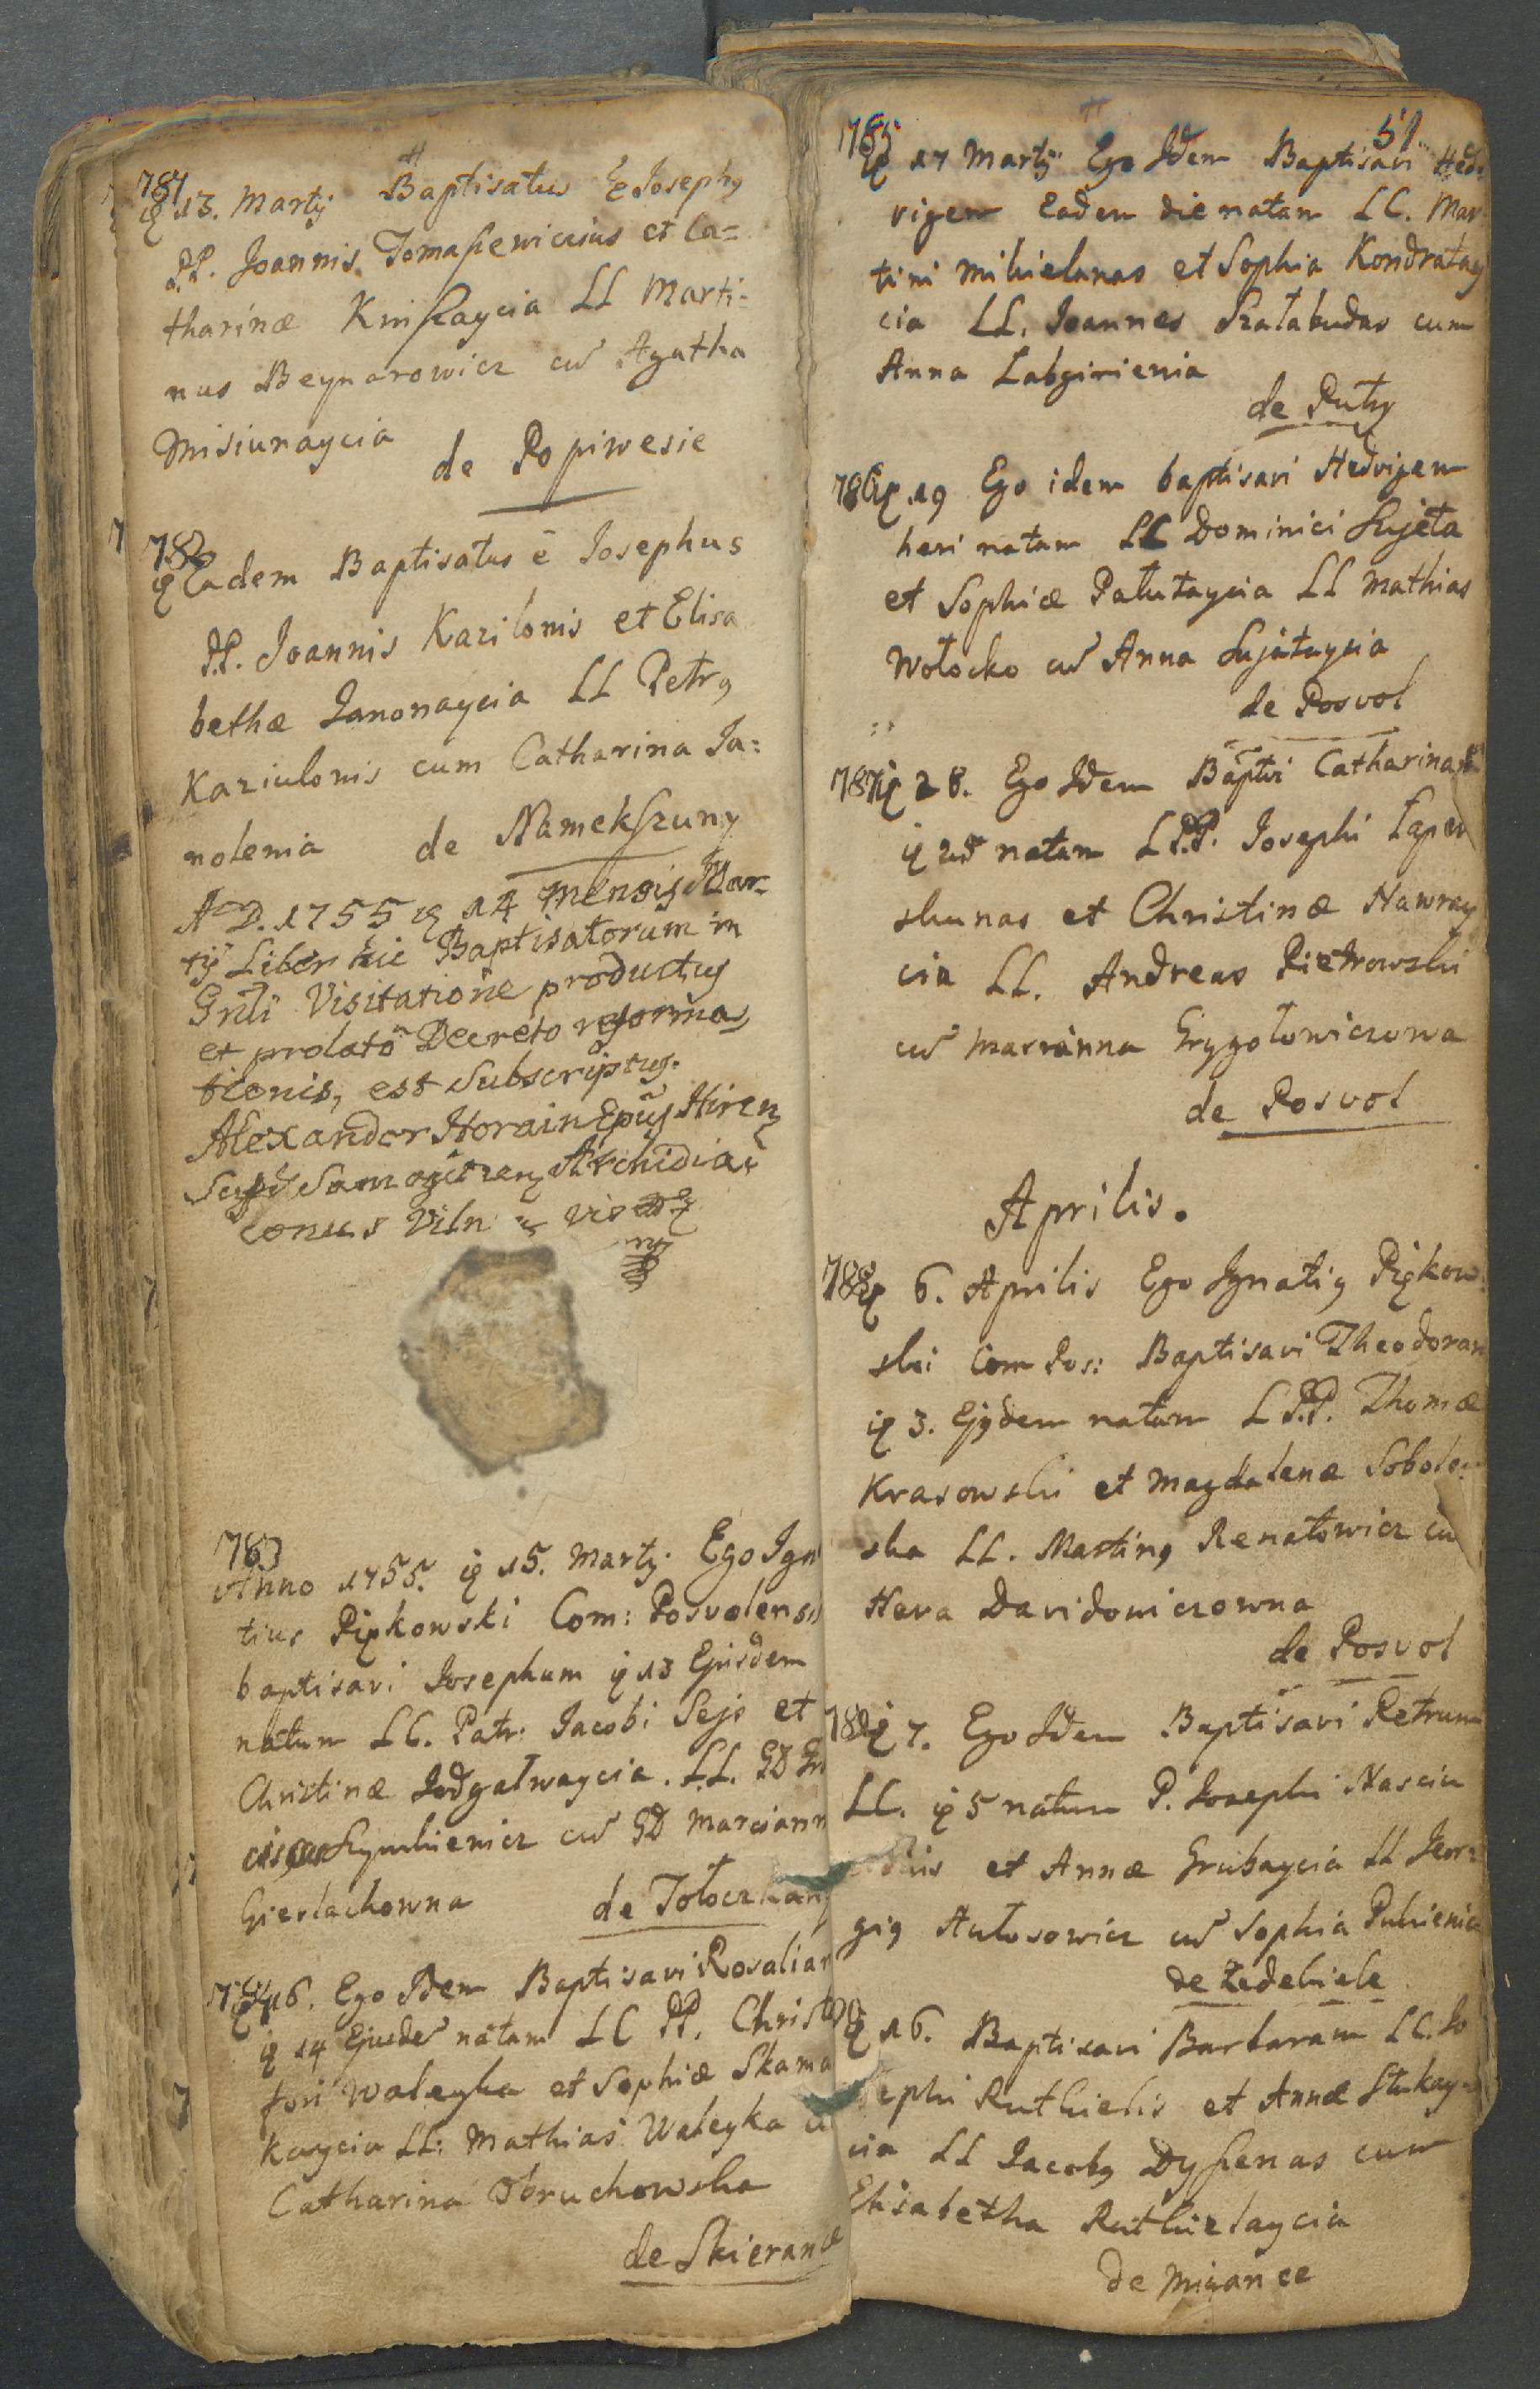 781
13. Martij Baptisatus e Joseph9
PP. Joannis Tomaszewiczius et Ca=
tharinæ Kniszaycia LL Marti-
nus Beynarowicz cu Agatha
Misiunaycia
de Popiwesie
782
Eadem Baptisatus ē Josephus
PP. Joannis Kazilonis et Elisa
bethæ Janonaycia LL Petr9
Kaziulonis cum Catharina Ja=
nolenia de Namekszuny
A D. 1755 14 Mensis Mar-
tij Liber hic Baptisatorum in
Gnli Visitatione productus
et prolato Decreto reforma
tionis, est Subscriptus.
Alexander Horain Epus Hiren
Samogitien Archidia
conus Viln
783
Anno 1755. 15. Martij. Ego Igna
tius Pigkowski Com: Posvolensis
baptisavi Josephum 13 Ejusdem
natum LC. Patr: Jacobi Sejs et
Christinæ Jodgalwaycia. LL. GD
cu GD Mariann
Gierlachowna de Toloczkany
784
16. Ego Idem Baptisavi Rosaliam
14 Ejusde natam LC PP. Christo
fori Waleyka et Sophiæ Skama
Kaycia LL: Mathias Waleyka cu
Catharina Obruchowska
de Skierand
51
785
17 Martij Ego Idem Baptisavi Hed-
vigem Eadem die natam LC. Mar
tini Mikielanas et Sophia Kondratay
cia LL. Joannes Szalabudas cum
Anna Labgirienia
de Puty
786 19 Ego idem baptisavi Hedvigem
heri natam LC Dominici Sujeta
et Sophiæ Palutaycia LL Mathias
Wolocko cu Anna Sujataycia
de Posvol
787 28. Ego Idem Baptvi Catharinam
natam LPP. Josephi Lapen
skunas et Christinæ Nawray
cia LL. Andreas Pietrowski
cu Marianna Grygolowiczowa
de Posvol
Aprilis.
788 6. Aprilis Ego Ignati9 Pigkow
ski Com Pos: Baptisavi Theodoram
3. Ej9dem natam LPP. Thomæ
Krasowski et Magdalenæ Sobolew
ska LL. Martin9 Renatowicz cu
Heva Davidowiczowna
de Posvol
789 7. Ego Idem Baptisavi Petrum
LC. 5 natum P. Josephi Nasciu
et Annæ Grubaycia LL Jeor=
gi9 Antosowicz cu Sophia Pukienia
de Ledekiele
16. Baptisavi Barbaram LC. Jo
sephi Rutkielis et Annæ Stukay-
cia LL Jacob9 Dyszenas cum
Elisabetha Rutkielaycia
de Micance